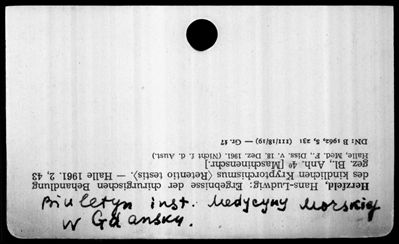 Biuletyn inst. Medycyny Morskiej
w Gdansku.
Herzfeld, Hans-Ludwig: Ergebnisse der chirurgischen Behandlung
des kindlichen Kryptorchismus (Retentio testis). — Halle 1961. 2, 43
gez. Bl., Anh. 4° [Maschinenschr.]
Halle, Med. F., Diss. v. 18. Dez. 1961. (Nicht f. d. Aust.)
DN: B 1962, 5 231 (111/18/19) — Gr. 57